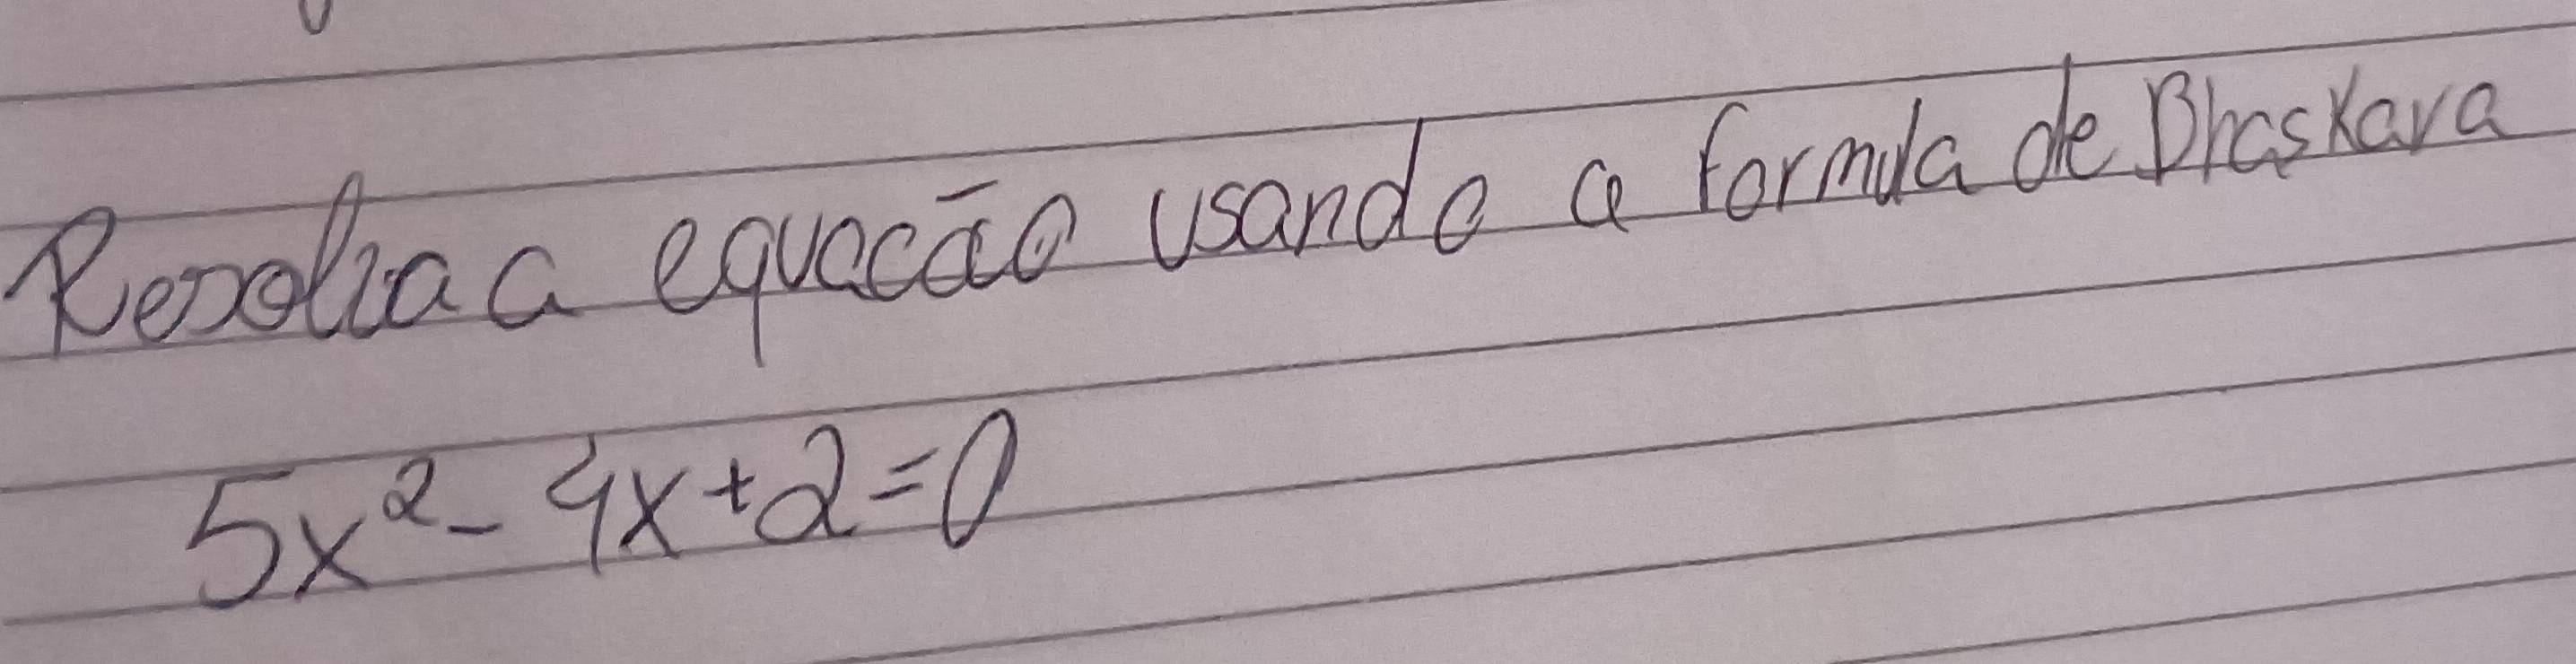 Resolva a equacão usando a formula de Bhaskara
5x² - 4x + 2 = 0